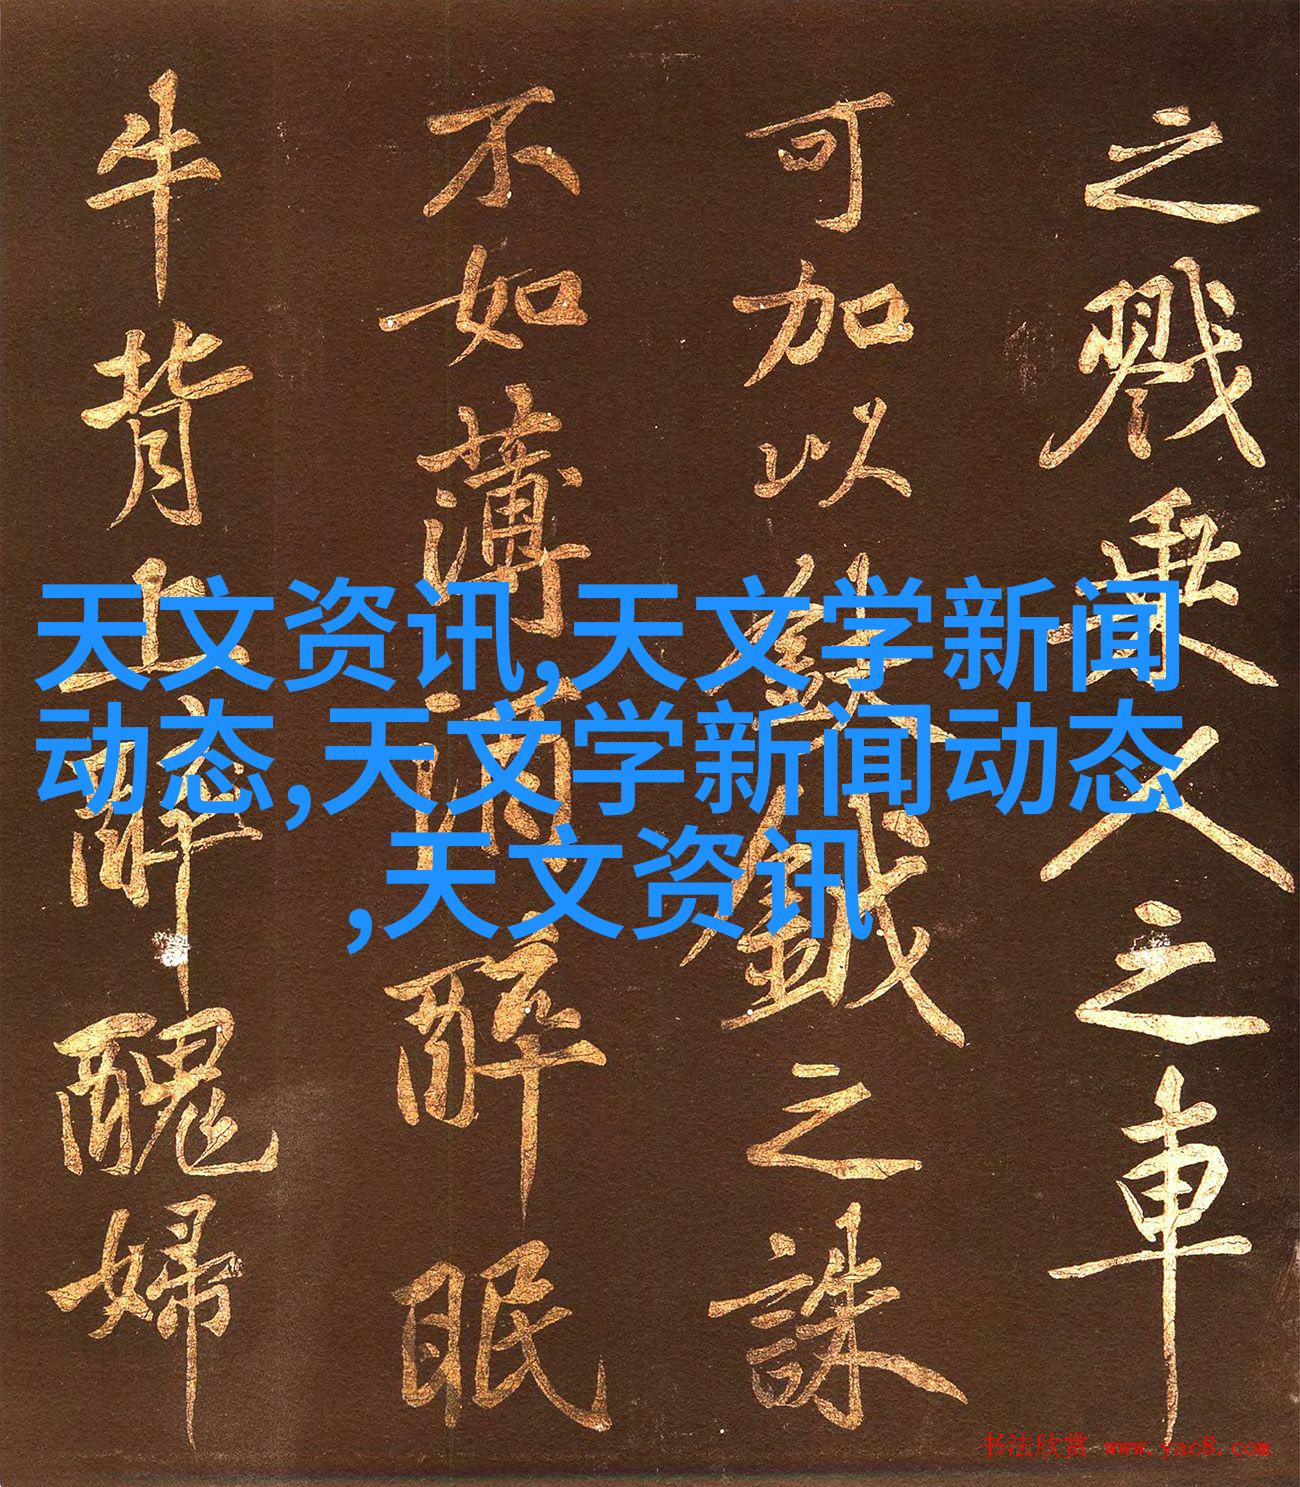 之戮乘人之車
可加以鈇鉞之誅
不如薄酒醉眠
牛背上醉醜婦
天文资讯,天文学新闻
动态,天文学新闻动态
,天文资讯
书法欣赏 www.yac8.com